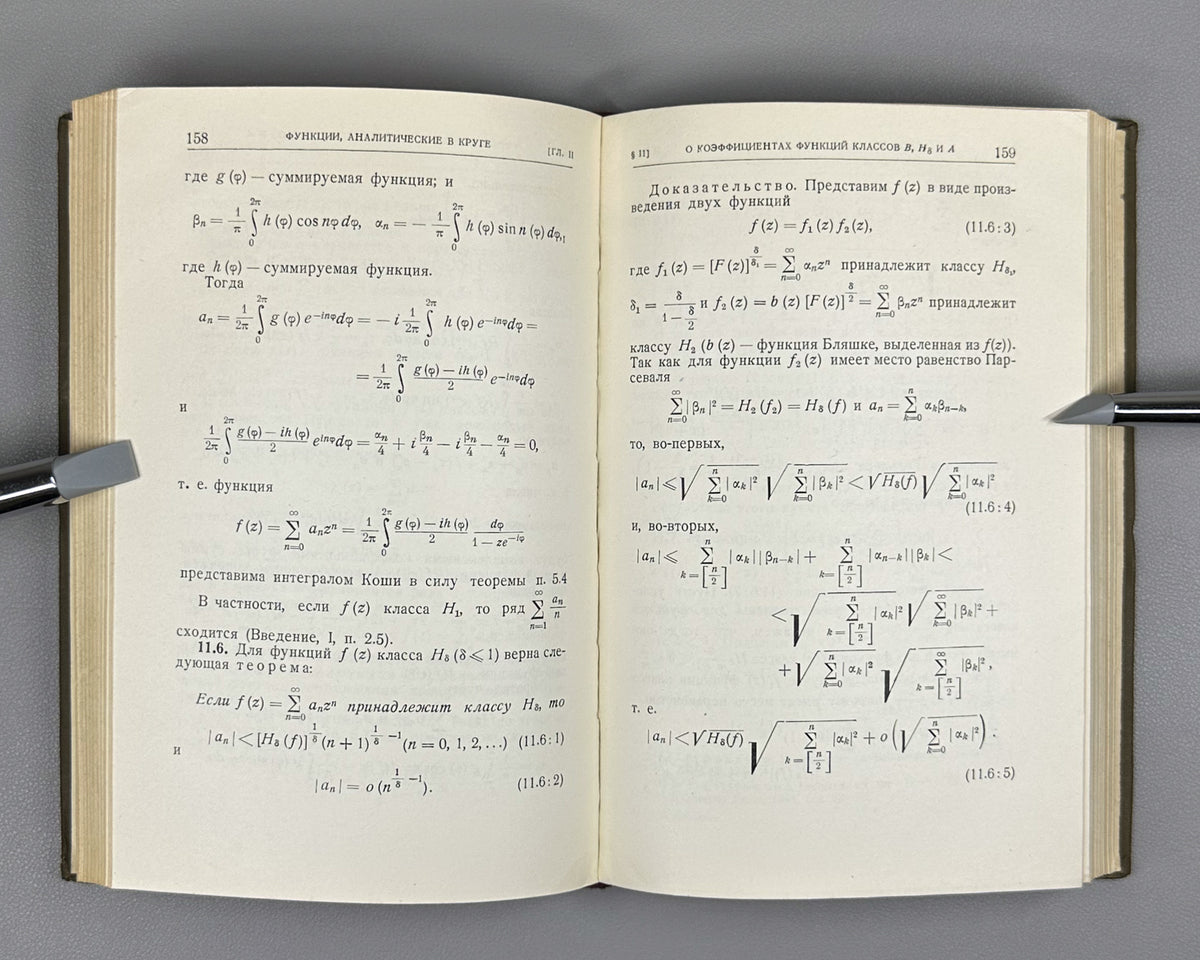 158 ФУНКЦИИ, АНАЛИТИЧЕСКИЕ В КРУГЕ [ГЛ. II
где g (φ) — суммируемая функция; и
βₙ = 1/π ∫₀^{2π} h (φ) cos nφ dφ, αₙ = — 1/π ∫₀^{2π} h (φ) sin n (φ) dφ,
где h (φ) — суммируемая функция.
Тогда
aₙ = 1/2π ∫₀^{2π} g (φ) e^{—inφ}dφ = — i 1/2π ∫₀^{2π} h (φ) e^{—inφ}dφ =
= 1/2π ∫₀^{2π} (g (φ) — ih (φ))/2 e^{—inφ}dφ
и
1/2π ∫₀^{2π} (g (φ) — ih (φ))/2 e^{inφ}dφ = αₙ/4 + i βₙ/4 — i βₙ/4 — αₙ/4 = 0,
т. е. функция
f (z) = ∑_{n=0}^{∞} aₙzⁿ = 1/2π ∫₀^{2π} (g (φ) — ih (φ))/2 dφ/(1 — ze^{—iφ})
представима интегралом Коши в силу теоремы п. 5.4
В частности, если f (z) класса H₁, то ряд ∑_{n=1}^{∞} aₙ/n
сходится (Введение, I, п. 2.5).
11.6. Для функций f (z) класса H_δ (δ ⩽ 1) верна сле-
дующая теорема:
Если f (z) = ∑_{n=0}^{∞} aₙzⁿ принадлежит классу H_δ, то
|aₙ| < [H_δ (f)]^{1/δ} (n + 1)^{1/δ —1} (n = 0, 1, 2,...) (11.6:1)
и
|aₙ| = o (n^{1/δ —1}). (11.6:2)
§ 11] О КОЭФФИЦИЕНТАХ ФУНКЦИЙ КЛАССОВ B, H_δ И A 159
Доказательство. Представим f (z) в виде произ-
ведения двух функций
f (z) = f₁ (z) f₂ (z), (11.6:3)
где f₁ (z) = [F (z)]^{δ/δ₁} = ∑_{n=0}^{∞} αₙzⁿ принадлежит классу H_{δ₁},
δ₁ = δ/(1 — δ/2) и f₂ (z) = b (z) [F (z)]^{δ/2} = ∑_{n=0}^{∞} βₙzⁿ принадлежит
классу H₂ (b (z) — функция Бляшке, выделенная из f(z)).
Так как для функции f₂ (z) имеет место равенство Пар-
севаля
∑_{n=0}^{∞} |βₙ|² = H₂ (f₂) = H_δ (f) и aₙ = ∑_{k=0}^{n} αₖβₙ₋ₖ,
то, во-первых,
|aₙ| ⩽ √(∑_{k=0}^{n} |αₖ|²) √(∑_{k=0}^{n} |βₖ|²) < √(H_δ(f)) √(∑_{k=0}^{n} |αₖ|²)
(11.6:4)
и, во-вторых,
|aₙ| ⩽ ∑_{k=[n/2]}^{n} |αₖ| |βₙ₋ₖ| + ∑_{k=[n/2]}^{n} |αₙ₋ₖ| |βₖ| <
< √(∑_{k=[n/2]}^{n} |αₖ|²) √(∑_{k=0}^{∞} |βₖ|²) +
+ √(∑_{k=0}^{n} |αₖ|²) √(∑_{k=[n/2]}^{∞} |βₖ|²),
т. е.
|aₙ| < √(H_δ(f)) √(∑_{k=[n/2]}^{n} |αₖ|²) + o (√(∑_{k=0}^{n} |αₖ|²)).
(11.6:5)